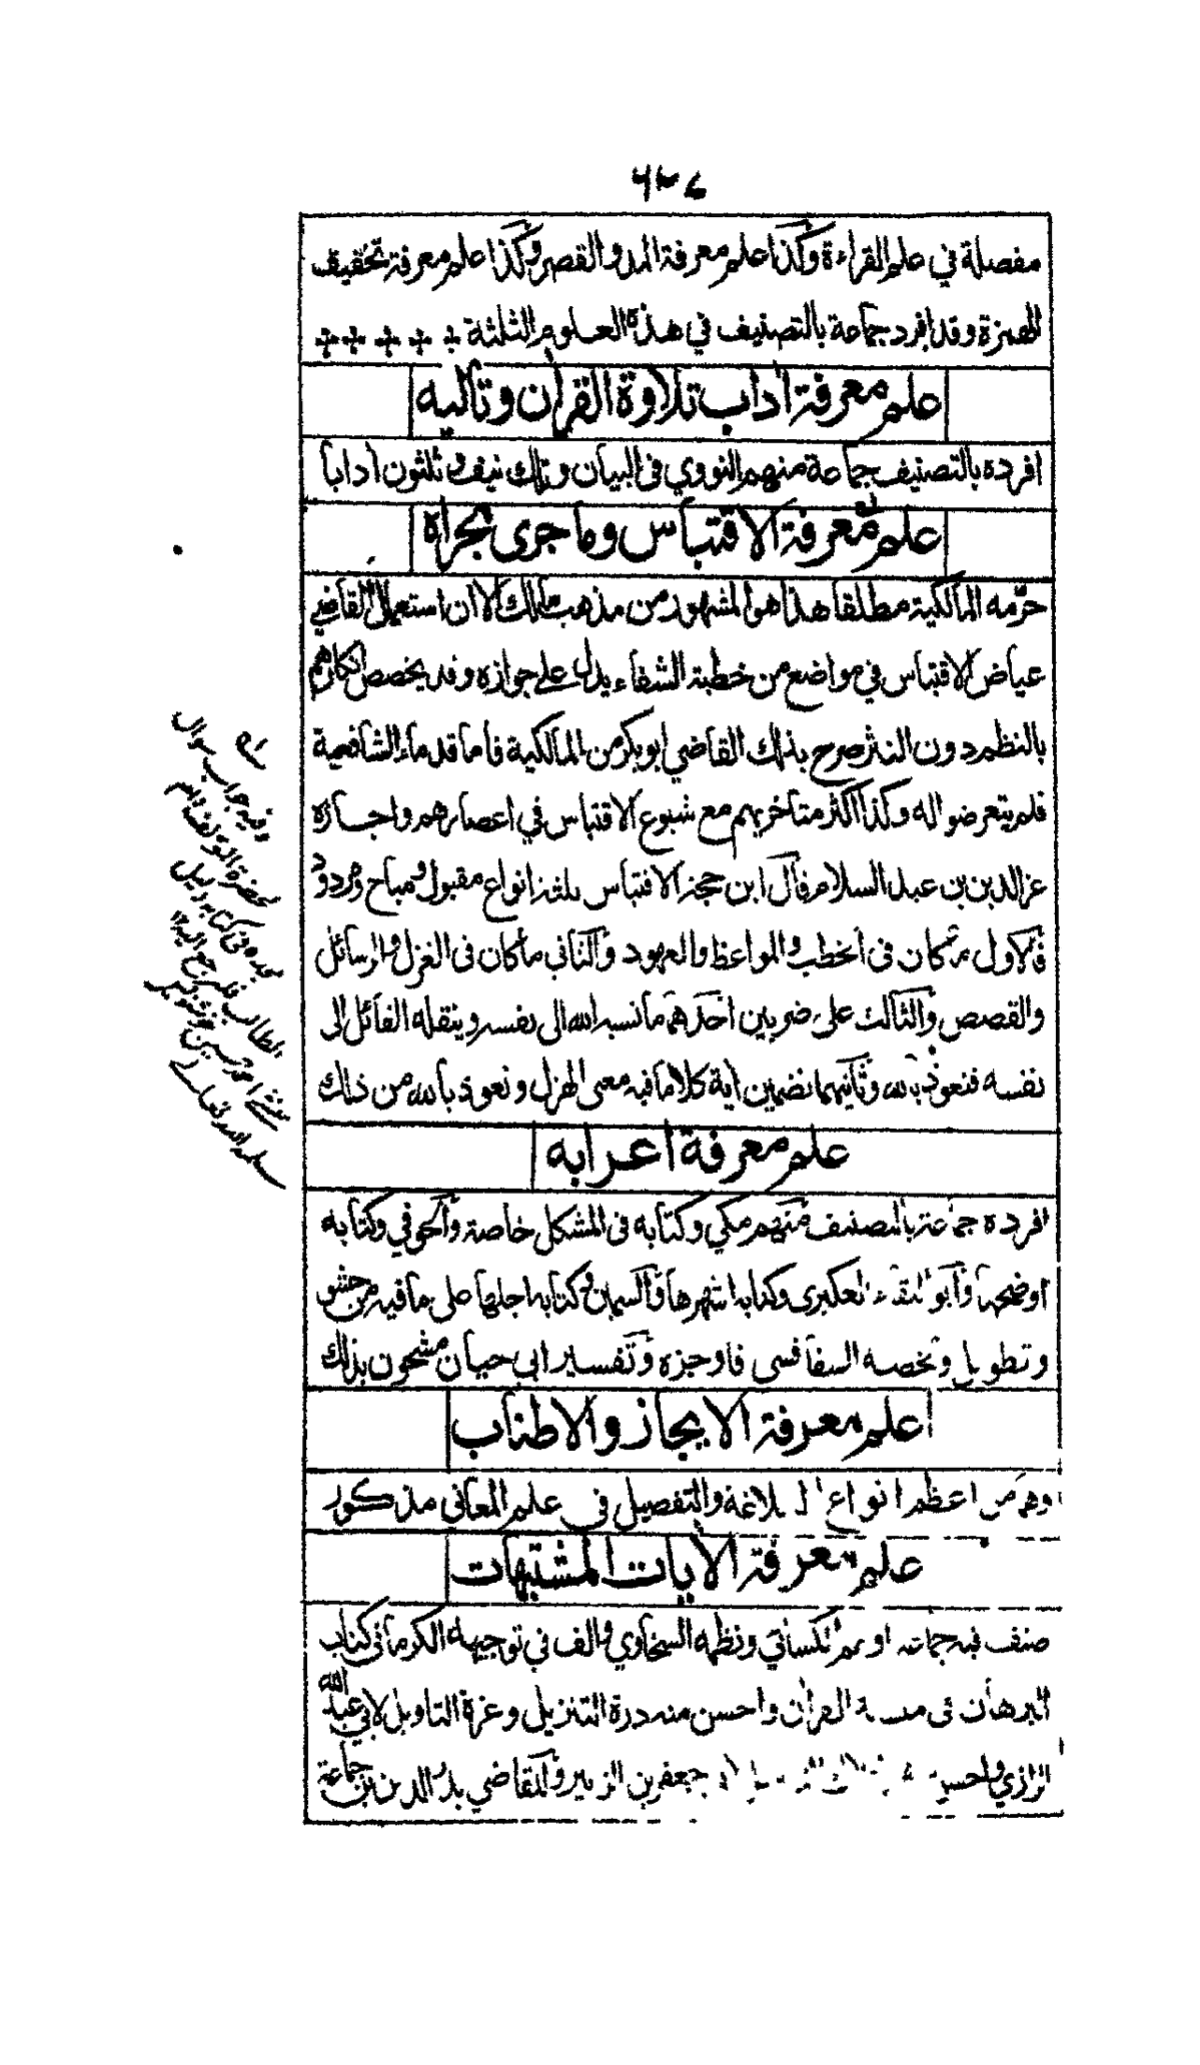 ٦٣٤
مفصلة في علم القراءة وكذا علم معرفة المد والقصر وكذا علم معرفة تخفيف
الهمزة وقد افرد جماعة بالتصنيف في هذه العلوم الثلثة
علم معرفة اداب تلاوة القران وتاليه
افرده بالتصنيف جماعة منهم النووي في البيان وتلك نيف وثلثون ادابا
علم معرفة الاقتباس وما جرى مجراه
حرمه المالكية مطلقا هذا هو المشهور من مذهب مالك الا ان استعمال القاضي
عياض الاقتباس في مواضع من خطبة الشفاء يدل على جوازه وقد يخصص انكارهم
بالنظم دون النثر صرح بذلك القاضي ابو بكر من المالكية فاما قدماء الشافعية
فلم يتعرضوا له وكذا اكثر متاخريهم مع شيوع الاقتباس في اعصارهم واجازه
عز الدين بن عبد السلام قال ابن حجة الاقتباس ثلثة انواع مقبول ومباح ومردود
فالاول ما كان في الخطب والمواعظ والعهود والثاني ما كان في الغزل والرسائل
والقصص والثالث على ضربين احدهما ما نسبه الله الى نفسه وينقله القائل الى
نفسه فنعوذ بالله وثانيهما تضمين اية كلاما فيه معنى الهزل ونعوذ بالله من ذلك
علم معرفة اعرابه
افرده جماعة بالتصنيف منهم مكي وكتابه في المشكل خاصة والحوفي وكتابه
اوضحها وابو البقاء العكبري وكتابه اشهرها والسمين وكتابه اجلها على ما فيه من حشو
وتطويل ولخصه السفاقسي فاوجزه وتفسير ابي حيان مشحون بذلك
علم معرفة الايجاز والاطناب
وهما من اعظم انواع البلاغة والتفصيل في علم المعاني مذكور
علم معرفة الايات المشتبهات
صنف فيه جماعة اولهم الكسائي ونظمه السخاوي والف في توجيهه الكرماني كتاب
البرهان في متشابه القران واحسن منه درة التنزيل وغرة التاويل لابي عبد الله
الرازي واحسن جعفر بن الزبير وللقاضي بدر الدين بن جماعة
وفيه جواب سوال